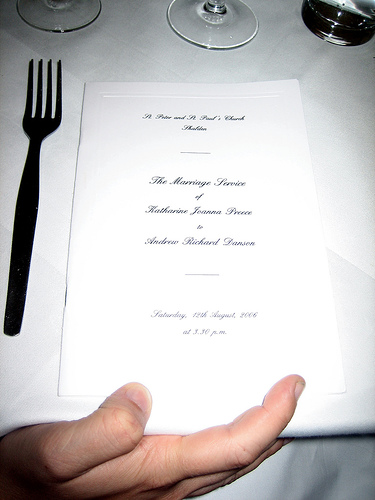 St. Peter and St. Paul's Church
Shelden
The Marriage Service
of
Katharine Joanna Preece
to
Andrew Richard Danson
Saturday, 12th August, 2006
at 3.30 p.m.